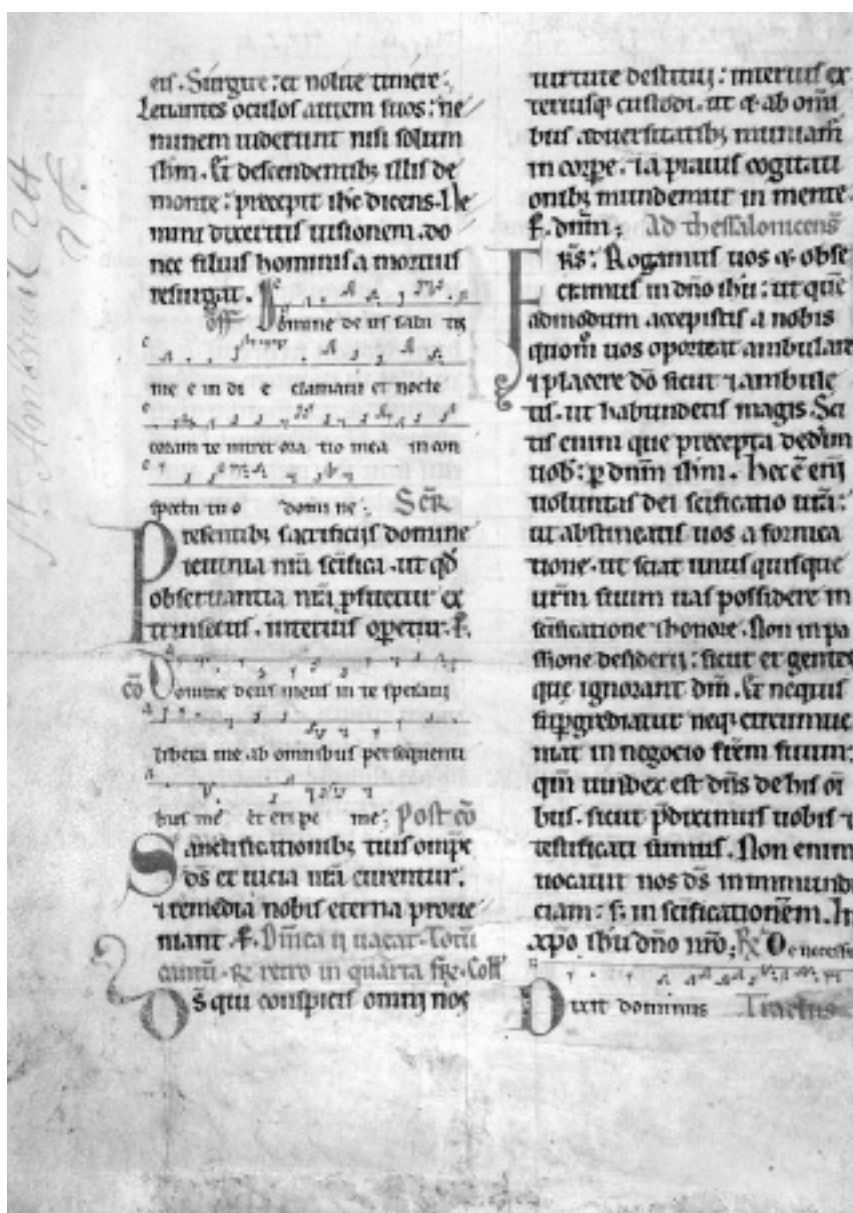 eis. Surgite: et nolite timere.
Leuantes oculos autem suos: ne
minem uiderunt nisi solum
ihm. Et descendentibȝ illis de
monte: precepit ihc dicens. Ne
mini dixeritis uisionem. do
nec filius hominis a mortuis
resurgat.
off Domine de us salu tis
me e in di e clamaui et nocte
coram te intret ora tio mea in con
spectu tu o domi ne; Scr̄
Presentibȝ sacrificijs domine
ieiunia nr̄a sc̄ifica. ut qd̄
obseruantia nr̄a ꝓfitetur ex
trinsecus. interius operetur. P.
cō Domine deus meus in te speraui
libera me ab omnibus persequenti
bus me et eripe me; Post cō
Sanctificationibȝ tuis omp̄s
ds̄ et uicia nr̄a curentur:
⁊ remedia nobis eterna proue
niant. P. Dn̄ica ij uacat. Totū
retro in quarta
Ds̄ qui conspicis omnj nos
uirtute destitui: interius ex
teriusqȝ custodi. ut ⁊ ab omī
bus aduersitatibȝ muniam̄
in corpe. ⁊ a prauis cogitati
onibȝ mundemur in mente.
P. dnm̄; Ad thessalonicens̄
Frs̄: Rogamus uos ⁊ obse
cramus in dn̄o ihu: ut quē
admodum accepistis a nobis
quom̄ uos oporteat ambulare
⁊ placere dō sicut ⁊ ambula
tis. ut habundetis magis. Sci
tis enim que precepta dedim̄
uob: ꝑ dnm̄ ihm. hec ē enī
uoluntas dei sc̄ificatio ur̄a:
ut abstineatis uos a fornica
tione. ut sciat unus quisque
urm̄ suum uas possidere in
sc̄ificatione ⁊ honore. Non in pa
ssione desiderij: sicut et gentes
que ignorant dm̄. Et nequis
supgrediatur neqȝ circumue
niat in negocio frēm suum:
qm̄ uindex est dn̄s de his oī
bus. sicut p̄diximus nobis ⁊
testificati sumus. Non enim
uocauit nos ds̄ in immundi
ciam: s; in sc̄ificationēm. In
xpo ihu dn̄o nr̄o; R̄ De necessi
Dixit dominus Tractus